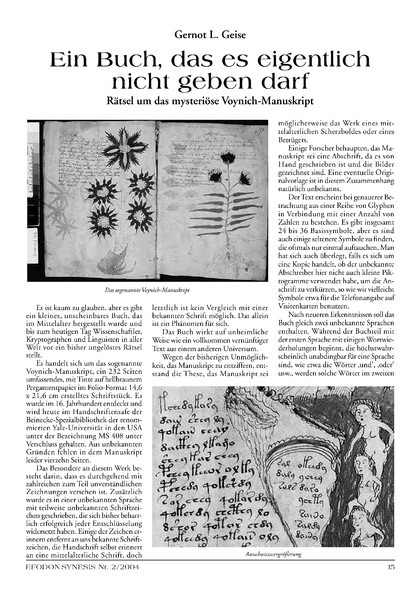 Gernot L. Geise
Ein Buch, das es eigentlich
nicht geben darf
Rätsel um das mysteriöse Voynich-Manuskript
Das sogenannte Voynich-Manuskript
Es ist kaum zu glauben, aber es gibt
ein kleines, unscheinbares Buch, das
im Mittelalter hergestellt wurde und
bis zum heutigen Tag Wissenschaftler,
Kryptographen und Linguisten in aller
Welt vor ein bisher ungelöstes Rätsel
stellt.
Es handelt sich um das sogenannte
Voynich-Manuskript, ein 232 Seiten
umfassendes, mit Tinte auf hellbraunem
Pergamentpapier im Folio-Format 14,6
x 21,6 cm erstelltes Schriftstück. Es
wurde im 16. Jahrhundert entdeckt und
wird heute im Handschriftensafe der
Beinecke-Spezialbibliothek der renom-
mierten Yale-Universität in den USA
unter der Bezeichnung MS 408 unter
Verschluss gehalten. Aus unbekannten
Gründen fehlen in dem Manuskript
leider vierzehn Seiten.
Das Besondere an diesem Werk be-
steht darin, dass es durchgehend mit
zahlreichen zum Teil unverständlichen
Zeichnungen versehen ist. Zusätzlich
wurde es in einer unbekannten Sprache
mit teilweise unbekannten Schriftzei-
chen geschrieben, die sich bisher beharr-
lich erfolgreich jeder Entschlüsselung
widersetzt haben. Einige der Zeichen er-
innern entfernt an uns bekannte Schrift-
zeichen, die Handschrift selbst erinnert
an eine mittelalterliche Schrift, doch
letztlich ist kein Vergleich mit einer
bekannten Schrift möglich. Das allein
ist ein Phänomen für sich.
Das Buch wirkt auf unheimliche
Weise wie ein vollkommen vernünftiger
Text aus einem anderen Universum.
Wegen der bisherigen Unmöglich-
keit, das Manuskript zu entziffern, ent-
stand die These, das Manuskript sei
möglicherweise das Werk eines mit-
telalterlichen Scherzboldes oder eines
Betrügers.
Einige Forscher behaupten, das Ma-
nuskript sei eine Abschrift, da es von
Hand geschrieben ist und die Bilder
gezeichnet sind. Eine eventuelle Origi-
nalvorlage ist in diesem Zusammenhang
natürlich unbekannt.
Der Text erscheint bei genauerer Be-
trachtung aus einer Reihe von Glyphen
in Verbindung mit einer Anzahl von
Zahlen zu bestehen. Es gibt insgesamt
24 bis 36 Basissymbole, aber es sind
auch einige seltenere Symbole zu finden,
die oftmals nur einmal auftauchen. Man
hat sich auch überlegt, falls es sich um
eine Kopie handelt, ob der unbekannte
Abschreiber hier nicht auch kleine Pik-
togramme verwendet habe, um die Ab-
schrift zu verkürzen, so wie wir vielleicht
Symbole etwa für die Telefonangabe auf
Visitenkarten benutzen.
Nach neueren Erkenntnissen soll das
Buch gleich zwei unbekannte Sprachen
enthalten. Während der Buchteil mit
der ersten Sprache mit einigen Wortwie-
derholungen beginnt, die höchstwahr-
scheinlich unabdingbar für eine Sprache
sind, wie etwa die Wörter ‚und‘, ‚oder‘
usw., werden solche Wörter im zweiten
Ausschnittsvergrößerung
EFODON-SYNESIS Nr. 2/2004
15